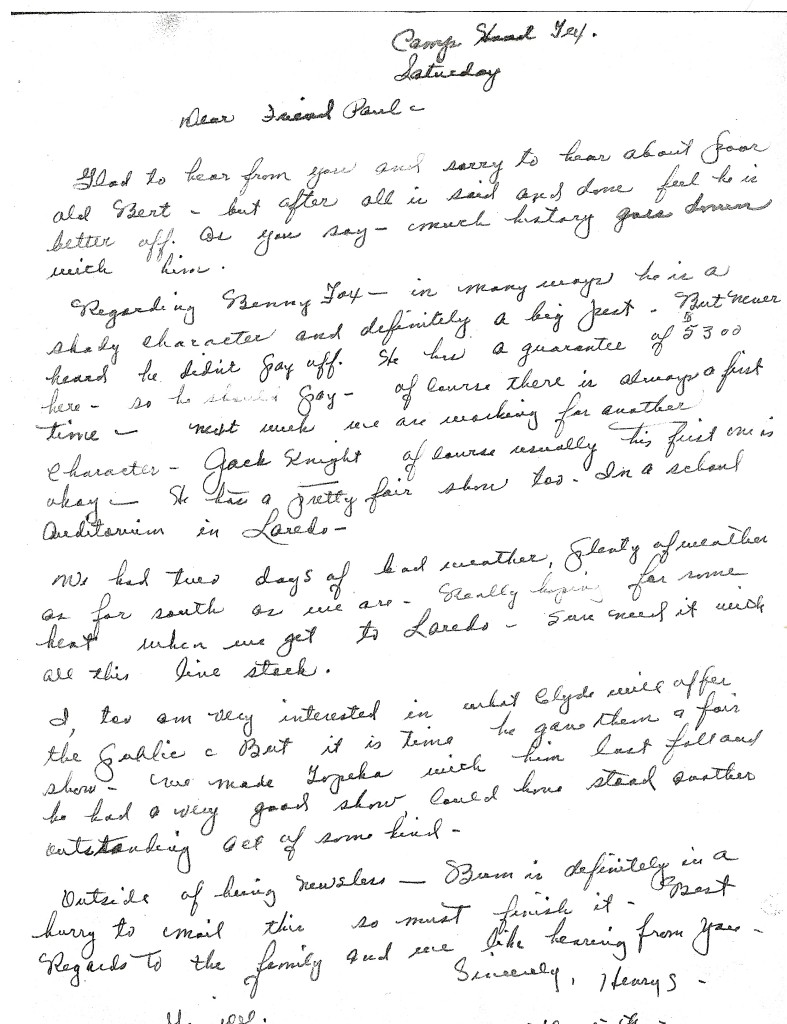 Camp Hood Tex.
Saturday
Dear Friend Paul -
Glad to hear from you and sorry to hear about poor
old Bert - but after all is said and done feel he is
better off. As you say - much history goes down
with him.
Regarding Benny Fox - in many ways he is a
shady character and definitely a big pest. But never
heard he didn't pay off. He has a guarantee of $5300
here - so he should pay - of course there is always a first
time - next week we are working for another
character - Jack Knight of course usually his first one is
okay - He has a pretty fair show too - In a school
Auditorium in Laredo -
We had two days of bad weather, plenty of weather
as far south as we are - Really hoping for some
heat when we get to Laredo - Sure need it with
all this live stock.
I, too am very interested in what Clyde will offer
the public - But it is time he gave them a fair
show - We made Topeka with him last fall and
he had a very good show, could have stood another
outstanding act of some kind -
Outside of being newsless - Bum is definitely in a
hurry to mail this so must finish it - Best
Regards to the family and we like hearing from you -
Sincerely, Henrys -